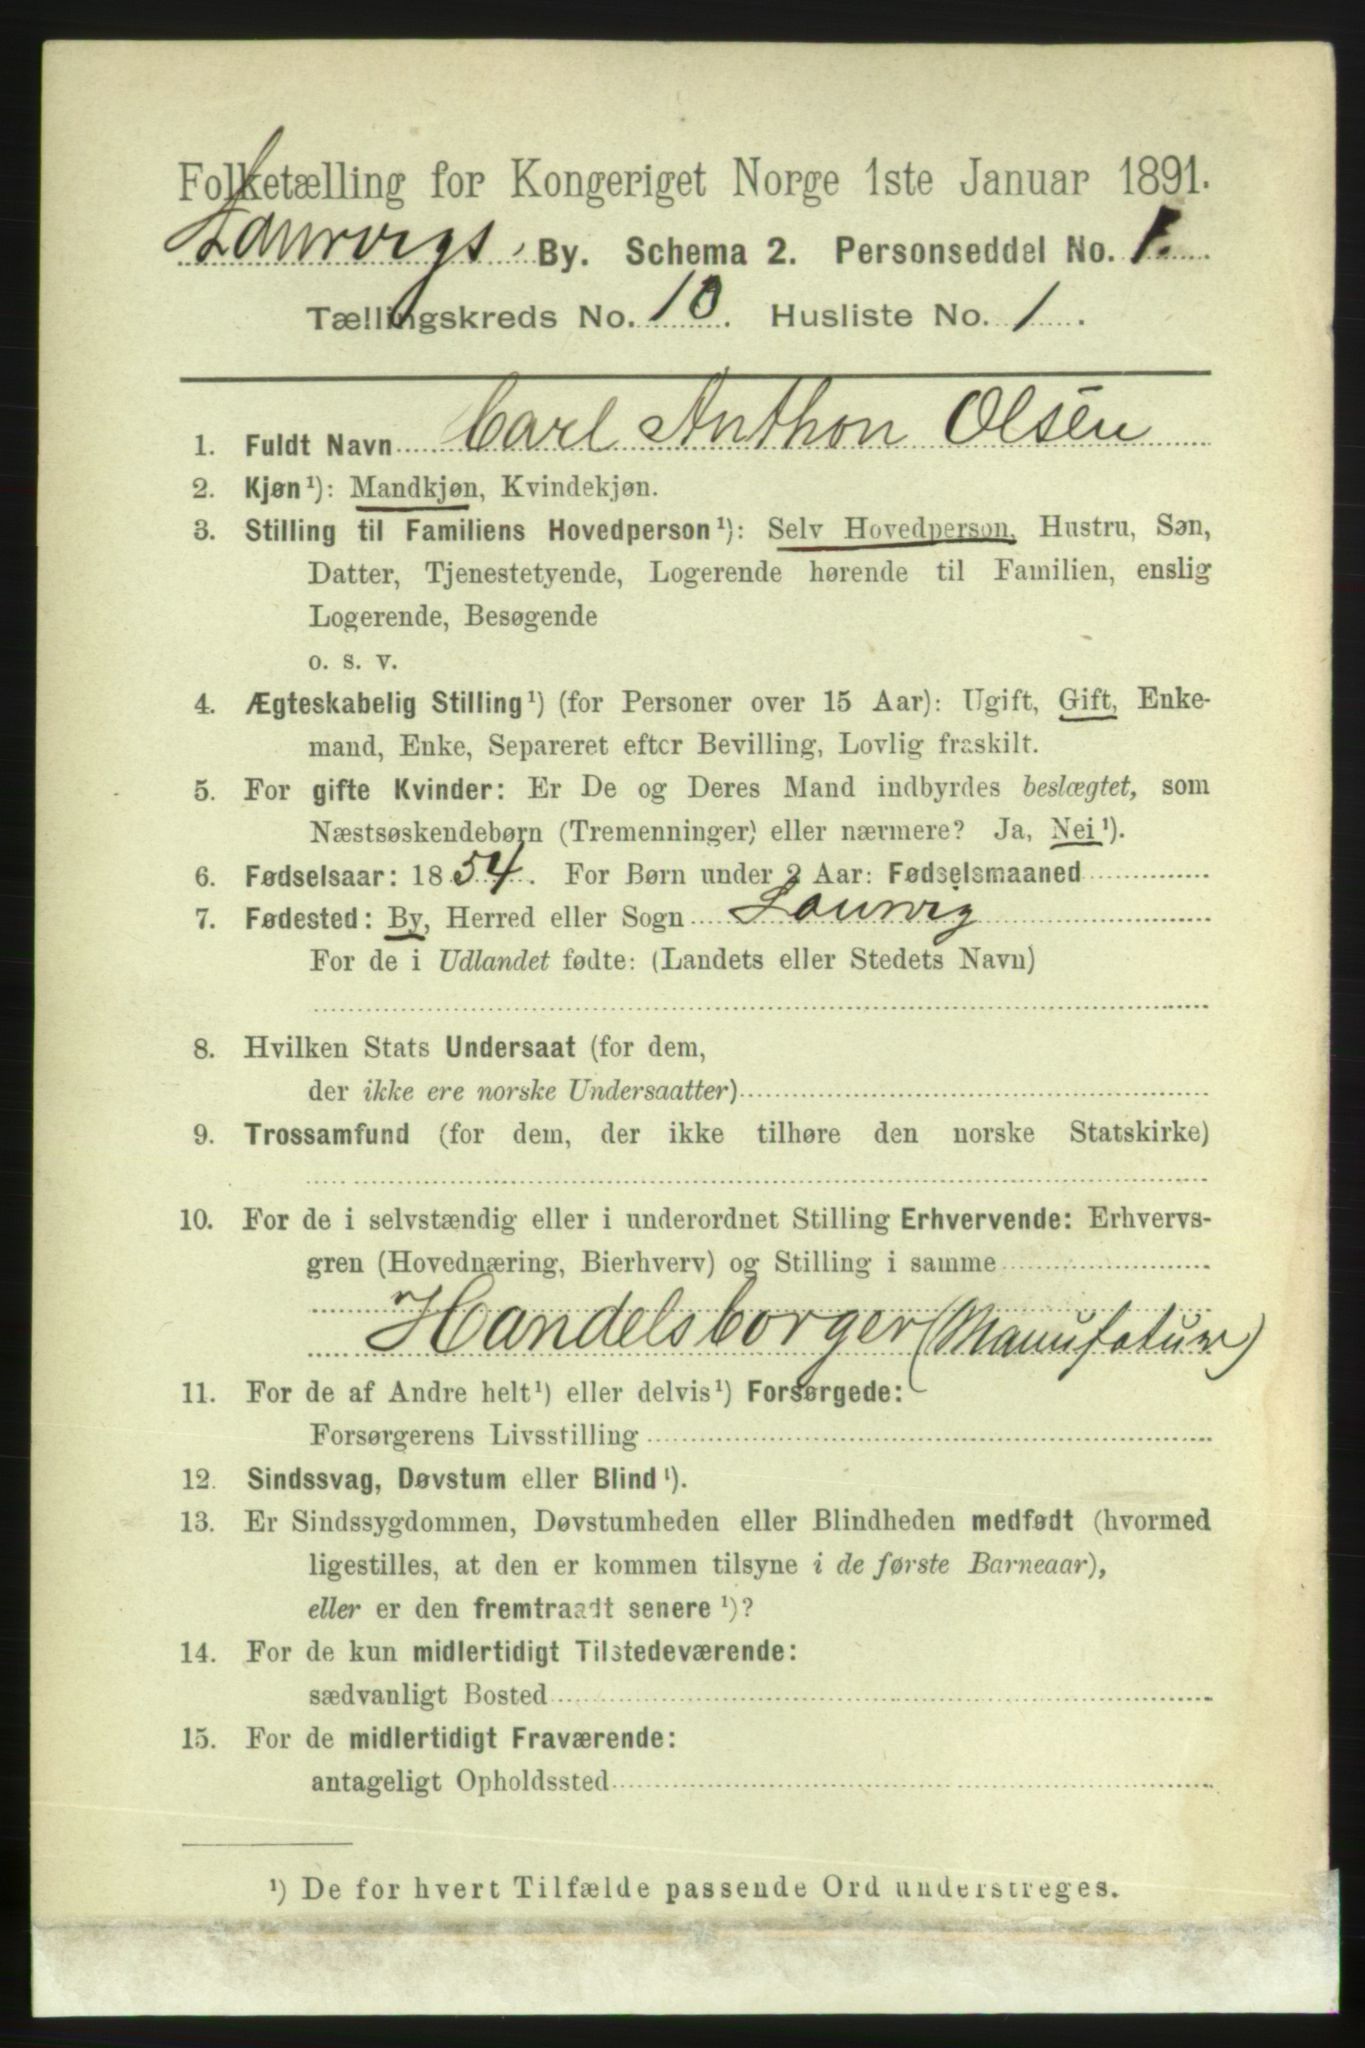 Folketælling for Kongeriget Norge 1ste Januar 1891.
Laurvigs By. Schema 2. Personseddel No. 1.
Tællingskreds No. 10. Husliste No. 1.
1. Fuldt Navn Carl Anthon Olsen
2. Kjøn¹): Mandkjøn, Kvindekjøn.
3. Stilling til Familiens Hovedperson¹): Selv Hovedperson, Hustru, Søn,
Datter, Tjenestetyende, Logerende hørende til Familien, enslig
Logerende, Besøgende
o. s. v.
4. Ægteskabelig Stilling¹) (for Personer over 15 Aar): Ugift, Gift, Enke-
mand, Enke, Separeret efter Bevilling, Lovlig fraskilt.
5. For gifte Kvinder: Er De og Deres Mand indbyrdes beslægtet, som
Næstsøskendebørn (Tremenninger) eller nærmere? Ja, Nei¹).
6. Fødselsaar: 1854. For Børn under 2 Aar: Fødselsmaaned
7. Fødested: By, Herred eller Sogn Laurvig
For de i Udlandet fødte: (Landets eller Stedets Navn)
8. Hvilken Stats Undersaat (for dem,
der ikke ere norske Undersaatter)
9. Trossamfund (for dem, der ikke tilhøre den norske Statskirke)
10. For de i selvstændig eller i underordnet Stilling Erhvervende: Erhvervs-
gren (Hovednæring, Bierhverv) og Stilling i samme
Handelsborger (Manufatur)
11. For de af Andre helt¹) eller delvis¹) Forsørgede:
Forsørgerens Livsstilling
12. Sindssvag, Døvstum eller Blind¹).
13. Er Sindssygdommen, Døvstumheden eller Blindheden medfødt (hvormed
ligestilles, at den er kommen tilsyne i de første Barneaar),
eller er den fremtraadt senere¹)?
14. For de kun midlertidigt Tilstedeværende:
sædvanligt Bosted
15. For de midlertidigt Fraværende:
antageligt Opholdssted
¹) De for hvert Tilfælde passende Ord understreges.